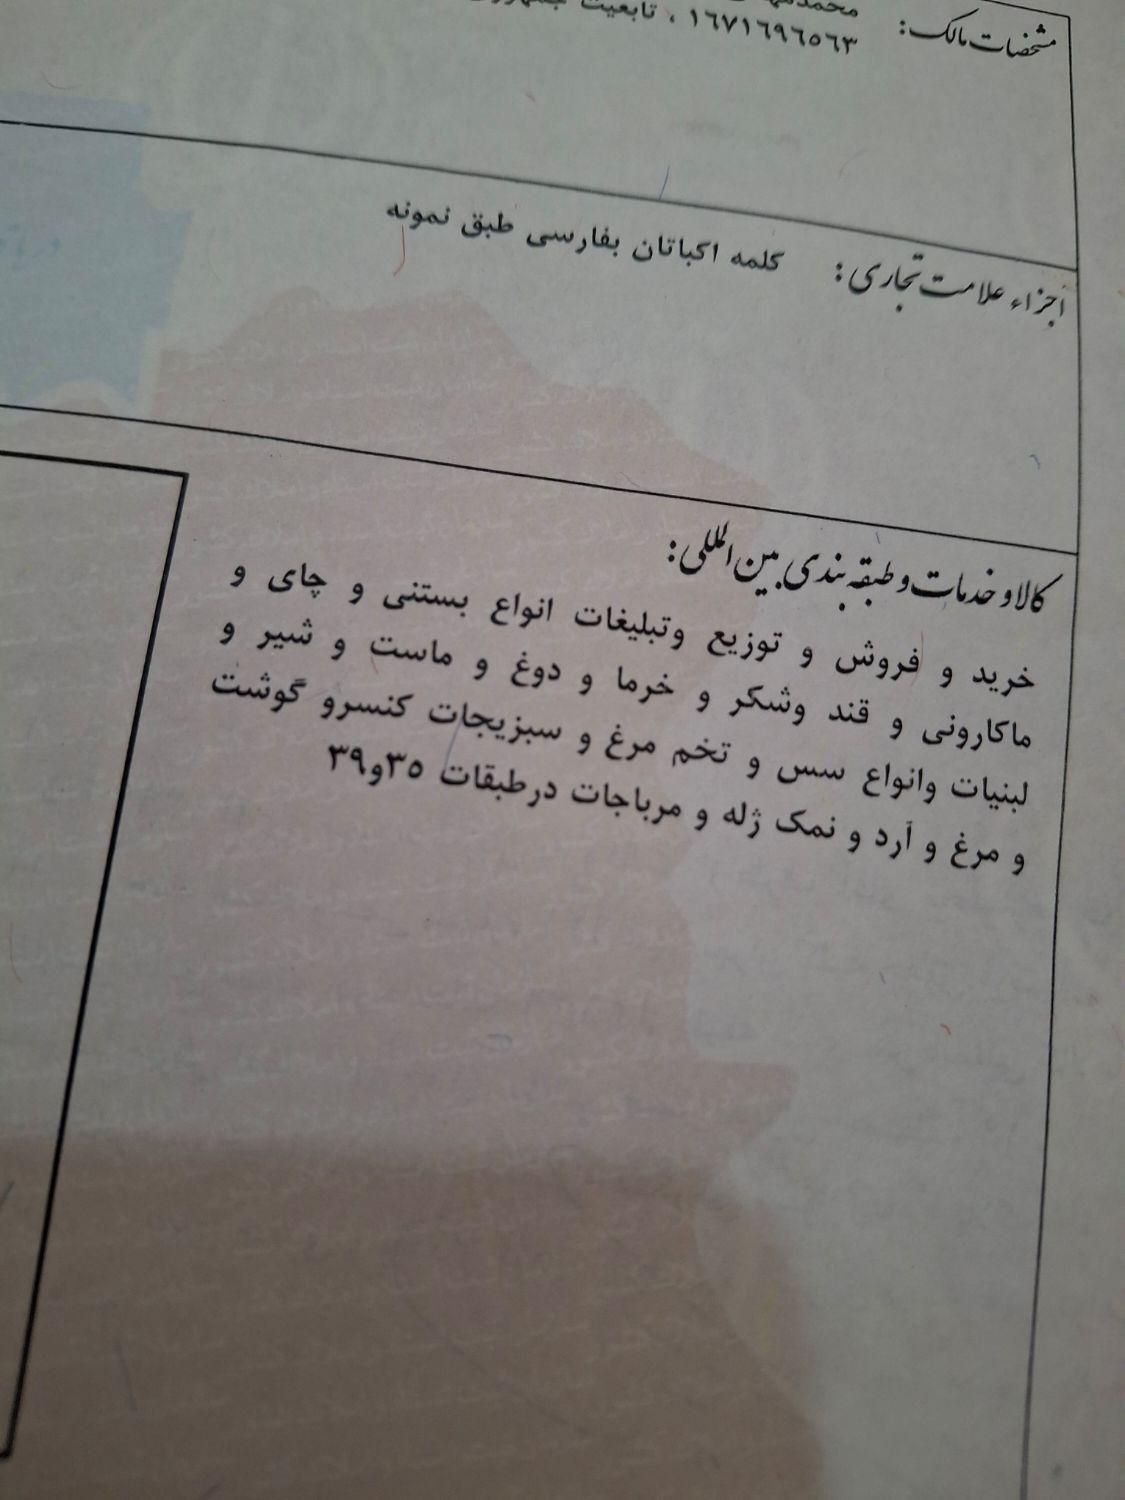 مشخصات مالک:
۱٦۷۱٦۹٦٥٦۳ ، تابعیت
اجزاء علامت تجاری: کلمه اکباتان بفارسی طبق نمونه
کالا و خدمات و طبقه بندی بین المللی:
خرید و فروش و توزیع وتبلیغات انواع بستنی و چای و
ماکارونی و قند وشکر و خرما و دوغ و ماست و شیر و
لبنیات وانواع سس و تخم مرغ و سبزیجات کنسرو گوشت
و مرغ و آرد و نمک ژله و مرباجات درطبقات ۳٥و۳۹